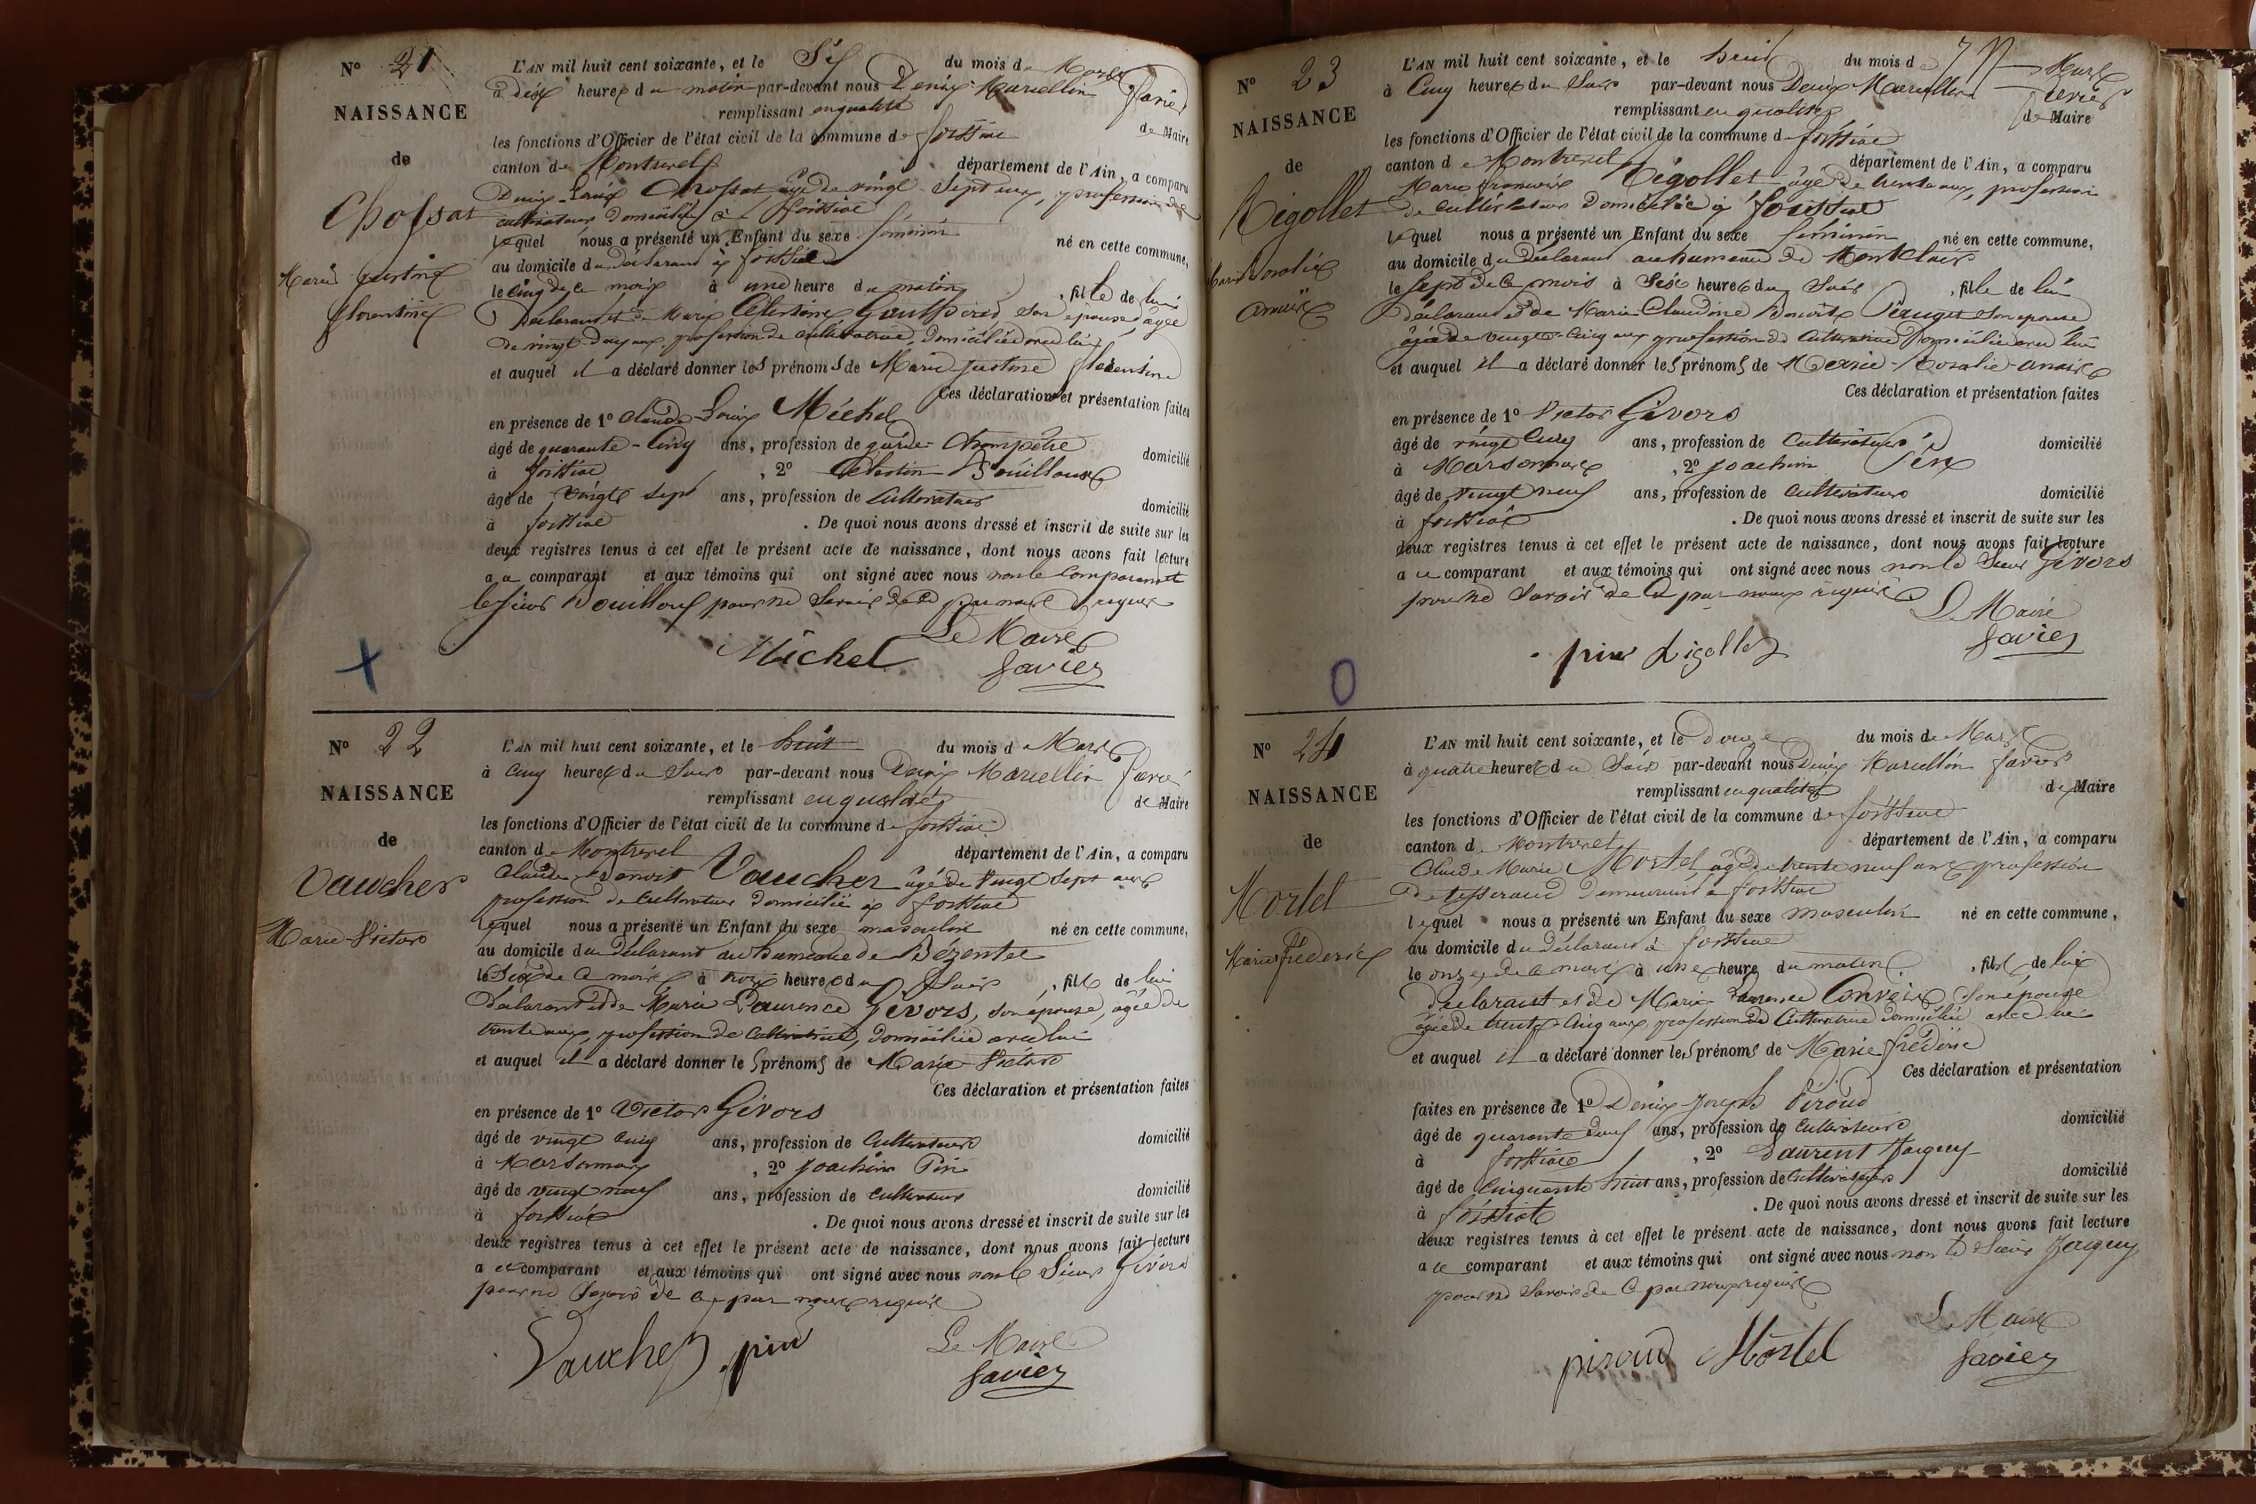 N° 21
NAISSANCE
de
Chossat
Marie Justine
florentine
L'AN mil huit cent soixante, et le Six du mois de Mars
à dix heures du matin par-devant nous Denis Marcellin Favier
remplissant en qualité de Maire
les fonctions d'Officier de l'état civil de la commune de foissiat
canton de Montrevel département de l'Ain, a comparu
Denis Louis Chossat, âgé de vingt-sept ans, profession de
cultivateur domicilié à foissiat
lequel nous a présenté un Enfant du sexe féminin né en cette commune,
au domicile du déclarant à foissiat
le cinq de ce mois à une heure du matin, fille de lui
déclarant et de Marie Célestine son épouse, âgée
de vingt-deux ans, profession de cultivatrice, domiciliée avec lui
et auquel il a déclaré donner les prénoms de Marie Justine florentine
Ces déclaration et présentation faites
en présence de 1° Claude Louis Michel
âgé de quarante-cinq ans, profession de garde-champêtre domicilié
à foissiat, 2° Célestin Bouilloux
âgé de vingt sept ans, profession de cultivateur domicilié
à foissiat. De quoi nous avons dressé et inscrit de suite sur les
deux registres tenus à cet effet le présent acte de naissance, dont nous avons fait lecture
au comparant et aux témoins qui ont signé avec nous non le comparant et
le sieur Bouilloux pour ne savoir de ce par nous requis
Le Maire
Michel favier
N° 22
NAISSANCE
de
Vaucher
Marie Victor
L'AN mil huit cent soixante, et le huit du mois de Mars
à cinq heures du soir par-devant nous Denis Marcellin Favier
remplissant en qualité de Maire
les fonctions d'Officier de l'état civil de la commune de foissiat
canton de Montrevel département de l'Ain, a comparu
Claude Benoit Vaucher âgé de vingt sept ans
profession de cultivateur domicilié à foissiat
lequel nous a présenté un Enfant du sexe masculin né en cette commune,
au domicile du déclarant au hameau de Bézentet
le Six de ce mois à heures du soir, fils de lui
déclarant et de Marie Laurence Gévors, son épouse, âgée de
trente ans, profession de cultivatrice, domiciliée avec lui
et auquel il a déclaré donner les prénoms de Marie Victor
Ces déclaration et présentation faites
en présence de 1° Victor Gévors
âgé de vingt cinq ans, profession de cultivateur domicilié
à Marsonnas, 2° Joachim Pin
âgé de vingt neuf ans, profession de cultivateur domicilié
à foissiat. De quoi nous avons dressé et inscrit de suite sur les
deux registres tenus à cet effet le présent acte de naissance, dont nous avons fait lecture
au comparant et aux témoins qui ont signé avec nous non le Sieur Gévors
pour ne savoir de ce par nous requis
Le Maire
Vaucher pin favier
N° 23
NAISSANCE
de
Rigollet
Marie Rosalie
Anaïs
L'AN mil huit cent soixante, et le huit du mois de Mars
à Cinq heures du Soir par-devant nous Denis Marcellin favier
remplissant en qualité de Maire
les fonctions d'Officier de l'état civil de la commune de foissiat
canton de Montrevel département de l'Ain, a comparu
Marie françois Rigollet âgé de trente ans, profession
de cultivateur domicilié à foissiat
lequel nous a présenté un Enfant du sexe féminin né en cette commune,
au domicile du déclarant au hameau de Montclair
le Sept de ce mois à Six heures du Soir, fille de lui
déclarant et de Marie Claudine Benoite Péruget son épouse
âgée de vingt-cinq ans profession de cultivatrice domiciliée avec lui
et auquel il a déclaré donner les prénoms de Marie-Rosalie-Anaïs
Ces déclaration et présentation faites
en présence de 1° Victor Gévors
âgé de vingt cinq ans, profession de cultivateur domicilié
à Marsonnas, 2° Joachim Pin
âgé de vingt neuf ans, profession de cultivateur domicilié
à foissiat. De quoi nous avons dressé et inscrit de suite sur les
deux registres tenus à cet effet le présent acte de naissance, dont nous avons fait lecture
au comparant et aux témoins qui ont signé avec nous non le Sieur Gévors
pour ne savoir de ce par nous requis
Le Maire
pin Rigollet favier
N° 24
NAISSANCE
de
Mortel
Marie fréderic
L'AN mil huit cent soixante, et le douze du mois de Mars
à quatre heures du Soir par-devant nous Denis Marcellin favier
remplissant en qualité de Maire
les fonctions d'Officier de l'état civil de la commune de foissiat
canton de Montrevel département de l'Ain, a comparu
Claude Marie Mortel, âgé de trente neuf ans profession
de tisserand demeurant à foissiat
lequel nous a présenté un Enfant du sexe masculin né en cette commune,
au domicile du déclarant à foissiat
le onze de ce mois à une heure du matin, fils de lui
déclarant et de Marie Laurence Convert Son épouse
âgée de trente-cinq ans, profession de cultivatrice domiciliée avec lui
et auquel il a déclaré donner les prénoms de Marie fréderic
Ces déclaration et présentation
faites en présence de 1° Denis Joseph Piroud
âgé de quarante ans, profession de cultivateur domicilié
à foissiat, 2° Laurent Jorguy
âgé de cinquante huit ans, profession de cultivateur domicilié
à foissiat. De quoi nous avons dressé et inscrit de suite sur les
deux registres tenus à cet effet le présent acte de naissance, dont nous avons fait lecture
au comparant et aux témoins qui ont signé avec nous non le Sieur Jorguy
pour ne savoir de ce par nous requis
Le Maire
piroud Mortel favier